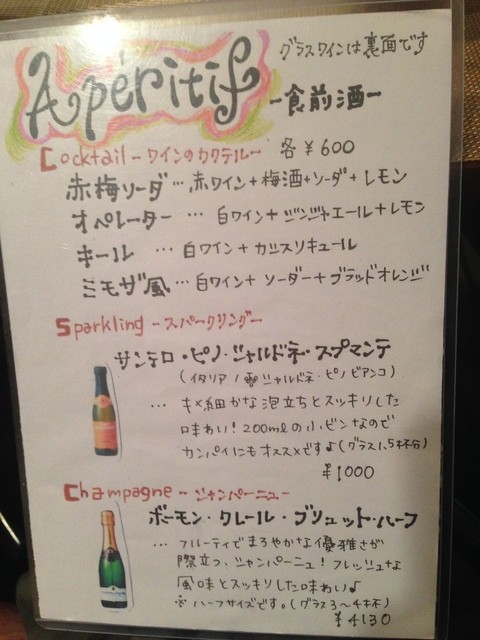 Apéritif グラスワインは裏面です
-食前酒-
Cocktail-ワインのカクテル- 各¥600
赤梅ソーダ…赤ワイン+梅酒+ソーダ+レモン
オペレーター … 白ワイン+ジンジャエール+レモン
キール … 白ワイン+カシスリキュール
ミモザ風…白ワイン+ソーダー+ブラッドオレンジ
Sparkling-スパークリング-
サンテロ・ピノ・シャルドネ・スプマンテ
(イタリア/シャルドネ・ピノビアンコ)
… キメ細かな泡立ちとスッキリした
味わい!200mlの小ビンなので
カンパイにもオススメです♪(グラスに5杯分)
¥1000
Champagne-シャンパーニュ-
ボーモン・クレール・ブリュット・ハーフ
… フルーティでまろやかな優雅さが
際立つ、シャンパーニュ!フレッシュな
風味とスッキリした味わい♪
※ハーフサイズです。(グラス3~4杯)
¥4130